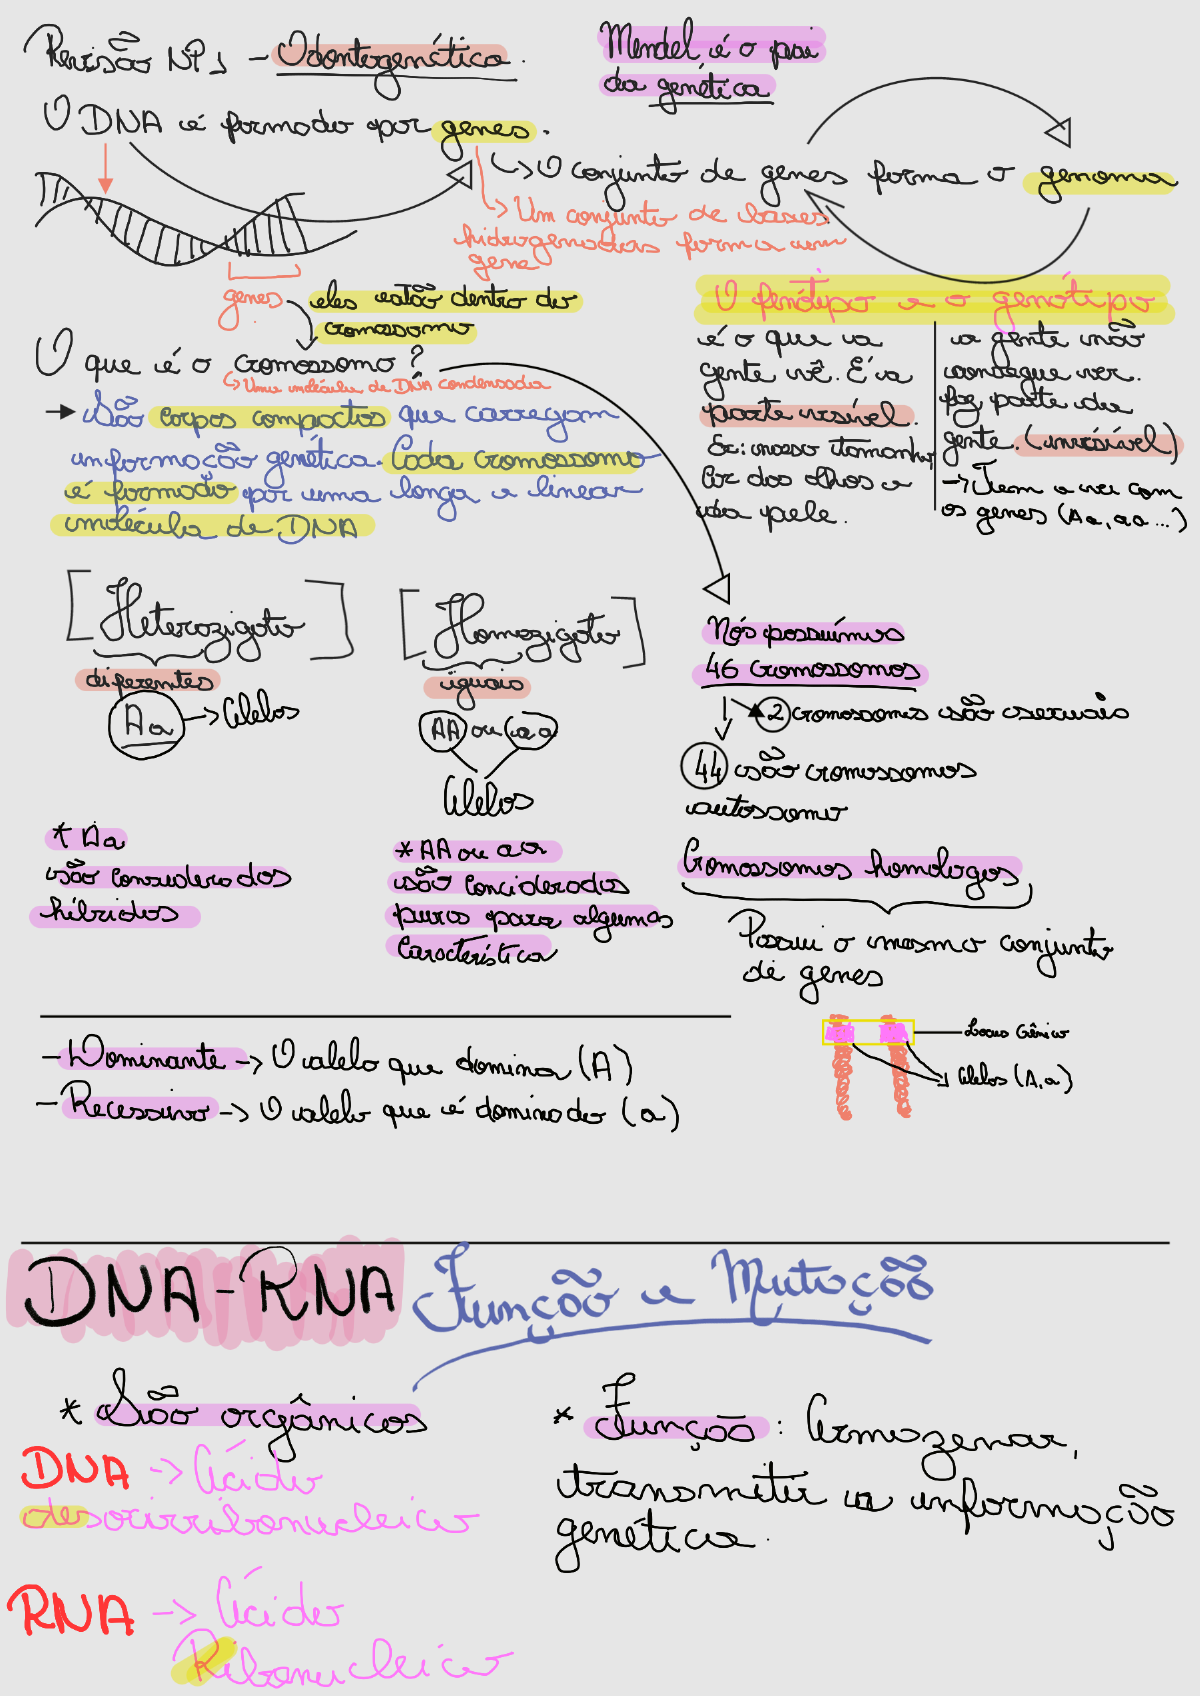 Revisão NP1 - Odontogenética.
Mendel é o pai
da genética
O DNA é formado por genes.
↳ O conjunto de genes forma o genoma
→ Um conjunto de bases
hidrogenadas forma um
gene
genes
eles estão dentro do
cromossomo
O que é o cromossomo?
↳ Uma molécula de DNA condensada
→ São corpos compactos que carregam
informação genética. Cada cromossomo
é formado por uma longa e linear
molécula de DNA
O fenótipo e o genótipo
é o que a
gente vê. É a
parte visível.
Ex: nosso tamanho
Cor dos olhos e
da pele.
a gente não
consegue ver.
faz parte da
gente. (invisível)
→ Tem a ver com
os genes (Aa, aa...)
[Heterozigoto]
diferentes
Aa → Alelos
* Aa
são considerados
híbridos
[Homozigoto]
iguais
AA ou aa
Alelos
* AA ou aa
são conciderados
puros para alguma
característica
Nós possuímos
46 cromossomos
2 cromossomos são sexuais
44 são cromossomos
autossomo
Cromossomos homologos
Possui o mesmo conjunto
de genes
Locus Gênico
Alelos (A, a)
- Dominante → O alelo que domina (A)
- Recessivo → O alelo que é dominado (a)
DNA-RNA Função e Mutação
* São orgânicos
DNA → Ácido
desoxirribonucleico
RNA → Ácido
Ribonucleico
* Função: Armazenar,
transmitir a informação
genética.